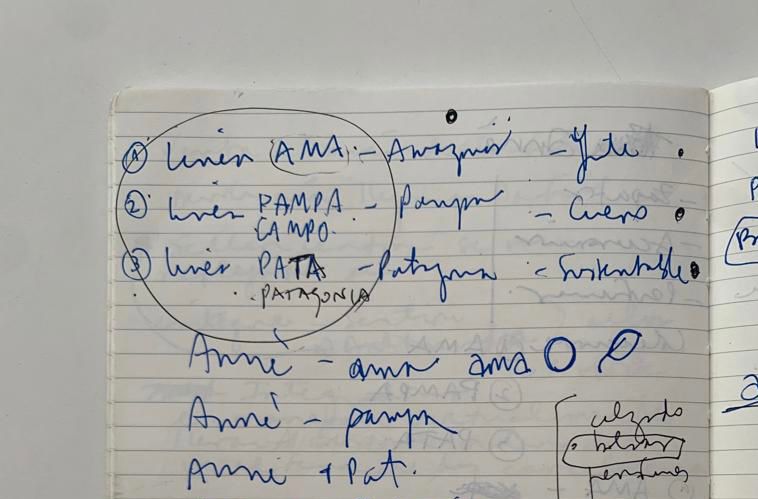 ① Linea (AMA) - Amazonia - Yute
② Linea PAMPA - Pampa - Cuero
CAMPO.
③ Linea PATA - Patagonia - Sustentable
PATAGONIA
Anné - ama ama
Anné - pampa
calzado
Anné + Pat.